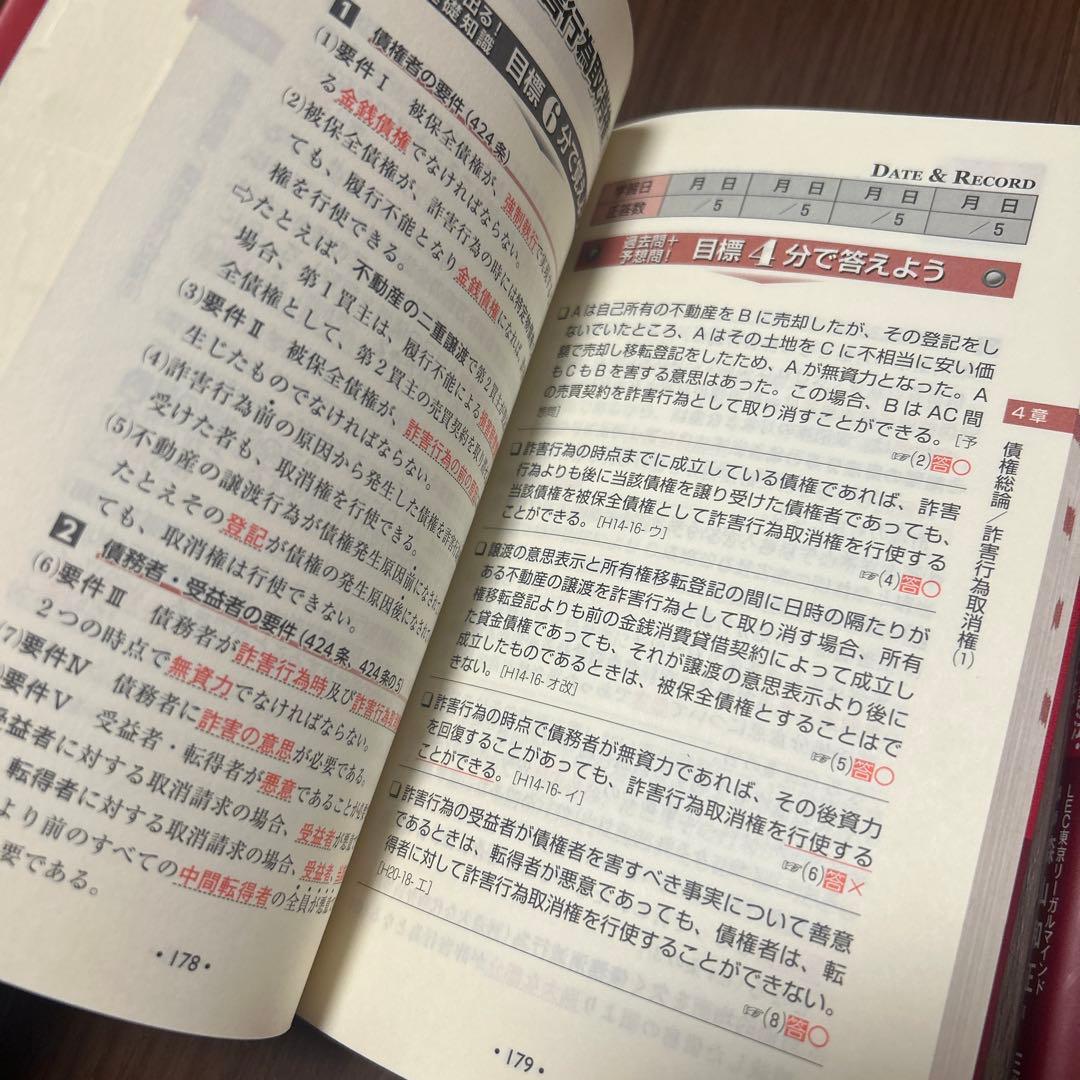 害行為取消
出る!
基礎知識
目標6分で覚え
1 債権者の要件(424条)
(1)要件Ⅰ 被保全債権が、強制執行で実現
る金銭債権でなければならない。
(2)被保全債権が、詐害行為の時には特定物
ても、履行不能となり金銭債権になれば
権を行使できる。
⇨たとえば、不動産の二重譲渡で第2買主が
場合、第1買主は、履行不能による損害賠
全債権として、第2買主の売買契約を取り消
(3)要件Ⅱ 被保全債権が、詐害行為の前の原
生じたものでなければならない。
(4)詐害行為前の原因から発生した債権を詐害行
受けた者も、取消権を行使できる。
(5)不動産の譲渡行為が債権発生原因前になされ
たとえその登記が債権の発生原因後になされて
ても、取消権は行使できない。
2 債務者・受益者の要件(424条、424条の5)
(6)要件Ⅲ 債務者が詐害行為時及び詐害行為取消
2つの時点で無資力でなければならない。
(7)要件Ⅳ 債務者に詐害の意思が必要である。
要件Ⅴ 受益者・転得者が悪意であることが必要
受益者に対する取消請求の場合、受益者が悪意
転得者に対する取消請求の場合、受益者、当
より前のすべての中間転得者の全員が悪意で
要である。
・178・
DATE & RECORD
学習日 月 日 月 日 月 日 月 日
正答数 /5 /5 /5 /5
過去問+
予想問!
目標4分で答えよう
□ Aは自己所有の不動産をBに売却したが、その登記をし
ないでいたところ、Aはその土地をCに不相当に安い価
額で売却し移転登記をしたため、Aが無資力となった。A
もCもBを害する意思はあった。この場合、BはAC間
の売買契約を詐害行為として取り消すことができる。[予
想問]
☞(2)答○
□ 詐害行為の時点までに成立している債権であれば、詐害
行為よりも後に当該債権を譲り受けた債権者であっても、
当該債権を被保全債権として詐害行為取消権を行使する
ことができる。[H14-16-ウ]
☞(4)答○
□ 譲渡の意思表示と所有権移転登記の間に日時の隔たりが
ある不動産の譲渡を詐害行為として取り消す場合、所有
権移転登記よりも前の金銭消費貸借契約によって成立し
た貸金債権であっても、それが譲渡の意思表示より後に
成立したものであるときは、被保全債権とすることはで
きない。[H14-16-オ改]
☞(5)答○
□ 詐害行為の時点で債務者が無資力であれば、その後資力
を回復することがあっても、詐害行為取消権を行使する
ことができる。[H14-16-イ]
☞(6)答×
□ 詐害行為の受益者が債権者を害すべき事実について善意
であるときは、転得者が悪意であっても、債権者は、転
得者に対して詐害行為取消権を行使することができない。
[H20-18-エ]
☞(8)答○
・179・
4章
債権総論/詐害行為取消権(1)
LEC東京リーガルマインド